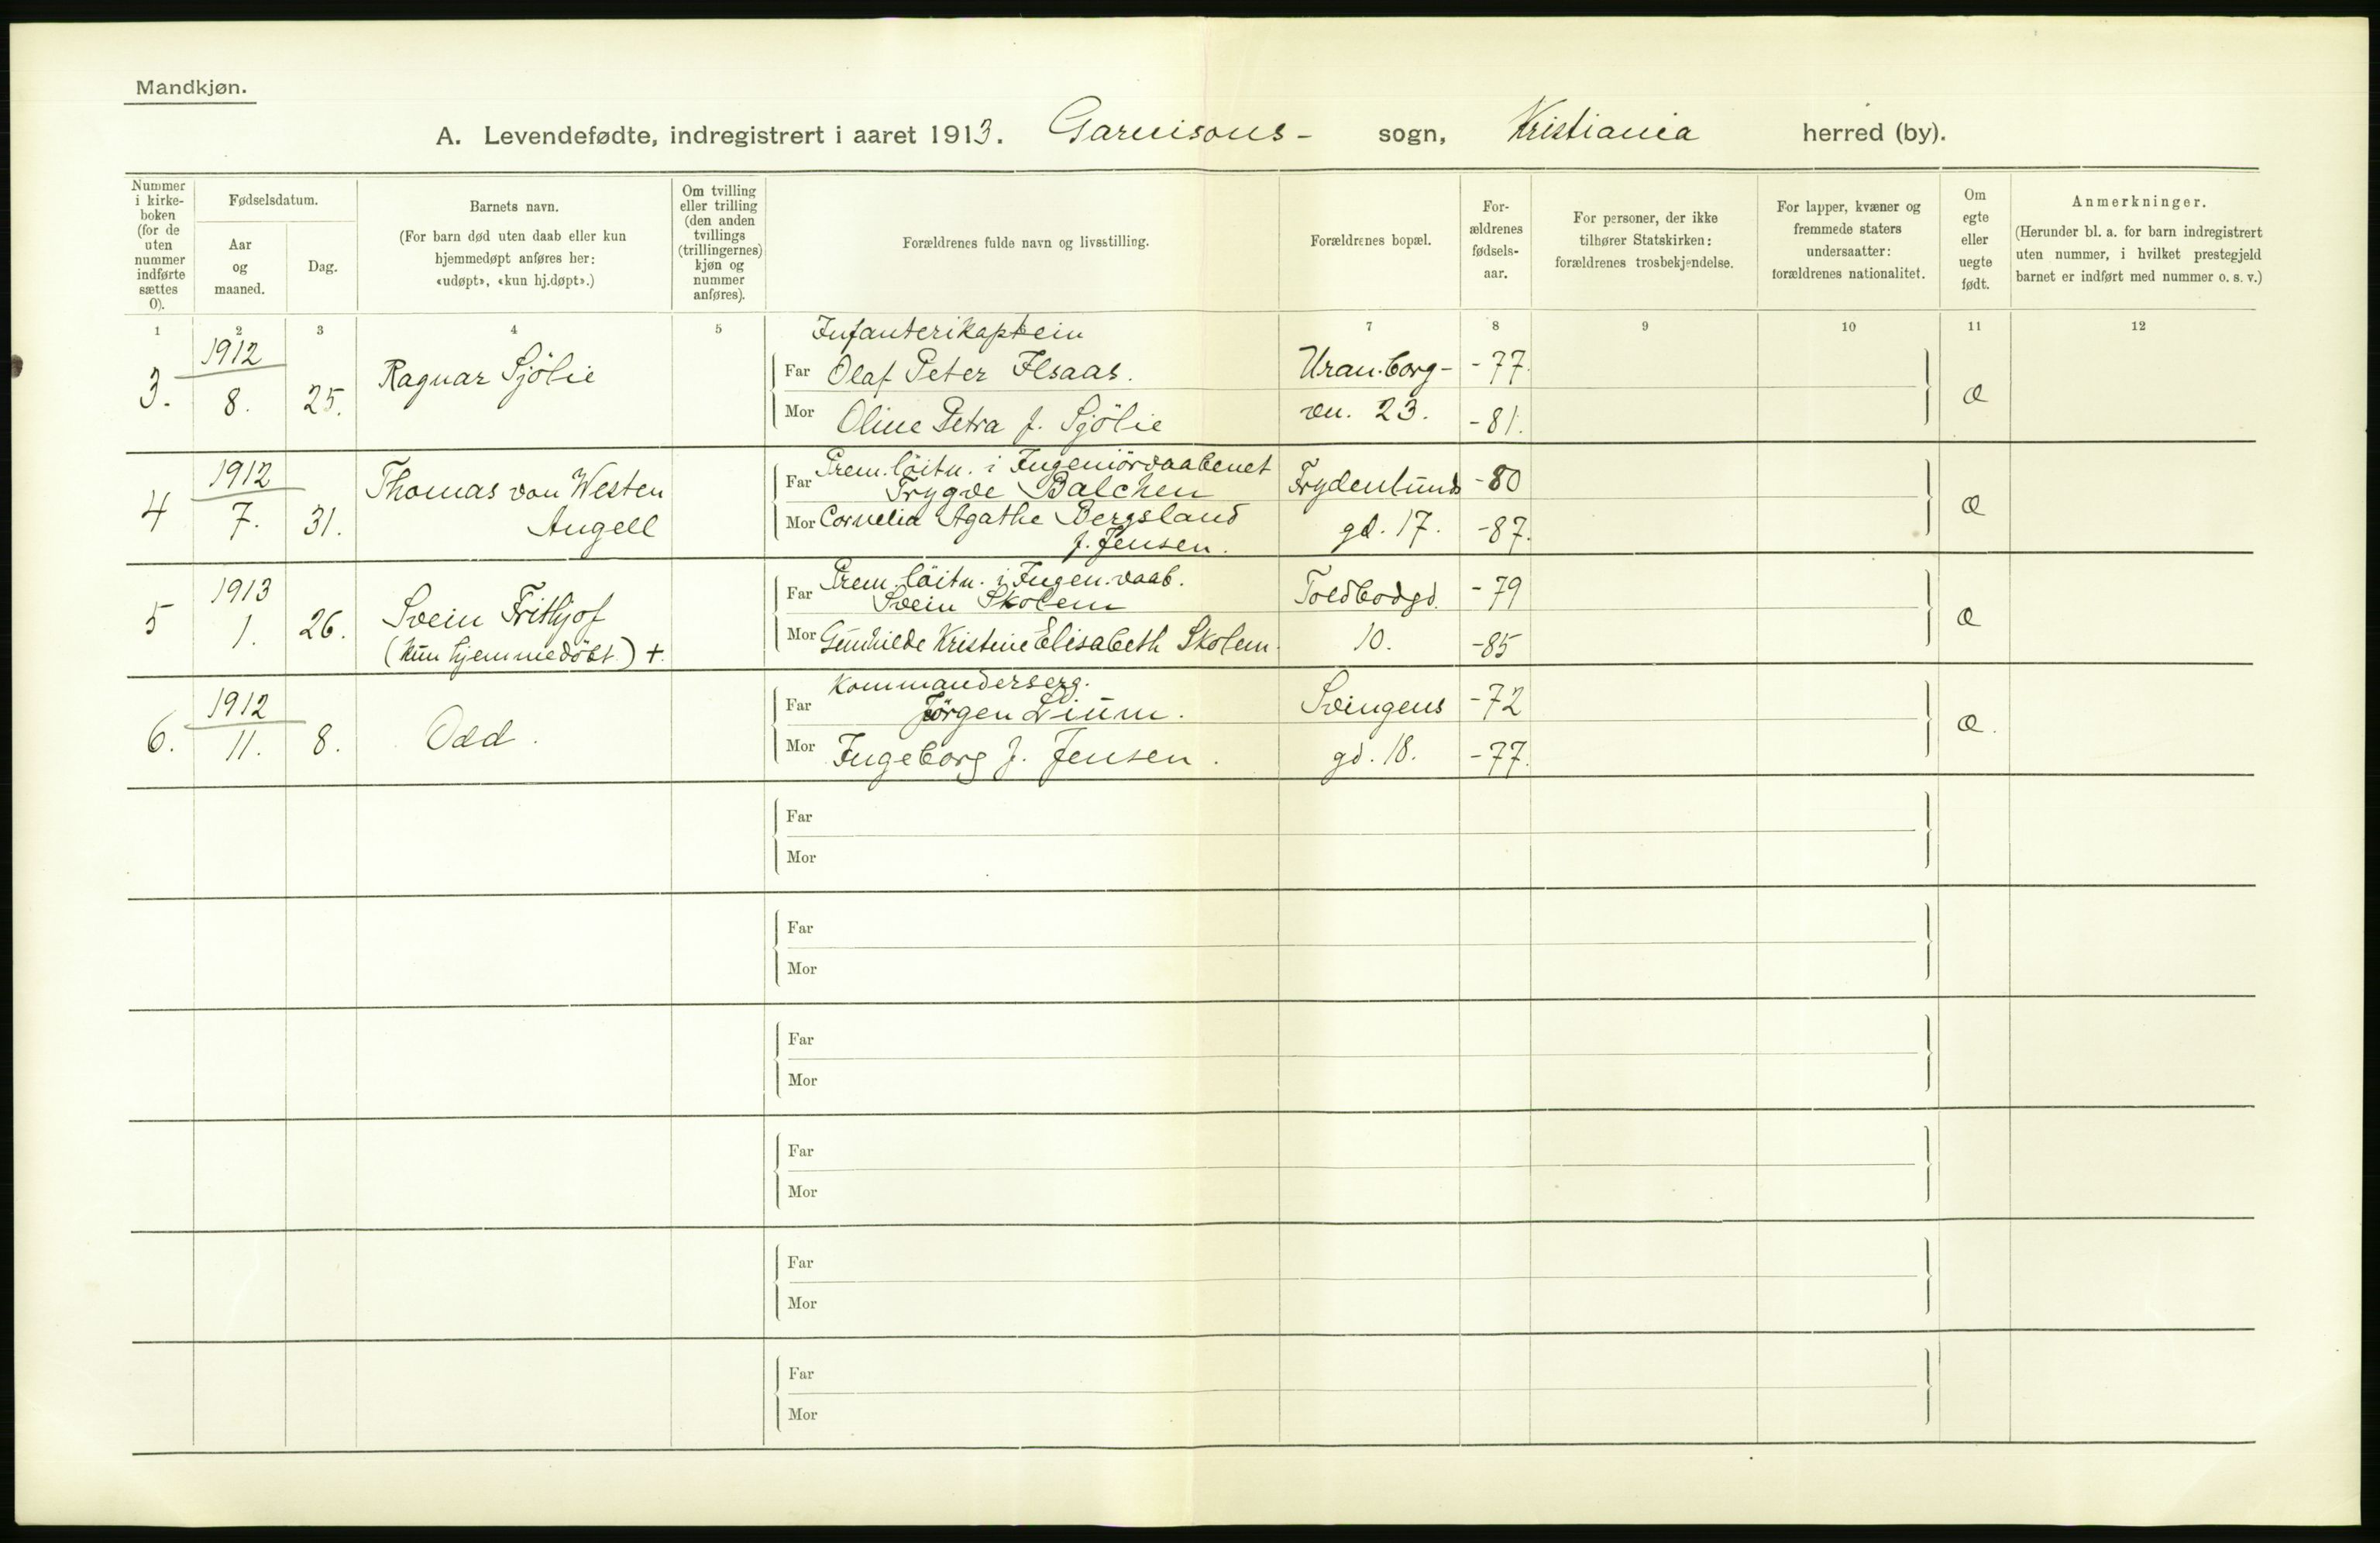 Mandkjøn.
A. Levendefødte, indregistrert i aaret 1913. Garnisons- sogn, Kristiania herred (by).
Nummer i kirke-boken (for de uten nummer indførte sættes 0).
Fødselsdatum.
Aar og maaned.
Dag.
Barnets navn.
(For barn død uten daab eller kun hjemmedøpt anføres her: «udøpt», «kun hj.døpt».)
Om tvilling eller trilling (den anden tvillings (trillingernes) kjøn og nummer anføres).
Forældrenes fulde navn og livsstilling.
Forældrenes bopæl.
For-ældrenes fødsels-aar.
For personer, der ikke tilhører Statskirken: forældrenes trosbekjendelse.
For lapper, kvæner og fremmede staters undersaatter: forældrenes nationalitet.
Om egte eller uegte født.
Anmerkninger.
(Herunder bl. a. for barn indregistrert uten nummer, i hvilket prestegjeld barnet er indført med nummer o. s. v.)
1 2 3 4 5 7 8 9 10 11 12
3. 1912 8. 25. Ragnar Sjölie
Infanterikaptein
Far Olaf Peter Ilsaas. Uranborg- -77.
Mor Oline Petra f. Sjölie vn. 23. -81. Æ
4 1912 7. 31. Thomas von Westen
Angell
Prem.löitn. i Ingeniörvaabenet
Far Trygve Balchen Frydenlunds -80
Mor Cornelia Agathe Bergsland gd. 17. -87. Æ
f. Jensen.
5 1913 1. 26. Svein Frithjof
(kun hjemmedöbt) +.
Prem.löitn. i Ingen.vaab.
Far Svein Skolem Toldbodgd. -79
Mor Gunhilde Kristine Elisabeth Skolem. 10. -85 Æ
6. 1912 11. 8. Odd.
Kommanderserg.
Far Jörgen Lium. Svingens -72
Mor Ingeborg f. Jensen. gd. 18. -77. Æ.
Far
Mor
Far
Mor
Far
Mor
Far
Mor
Far
Mor
Far
Mor